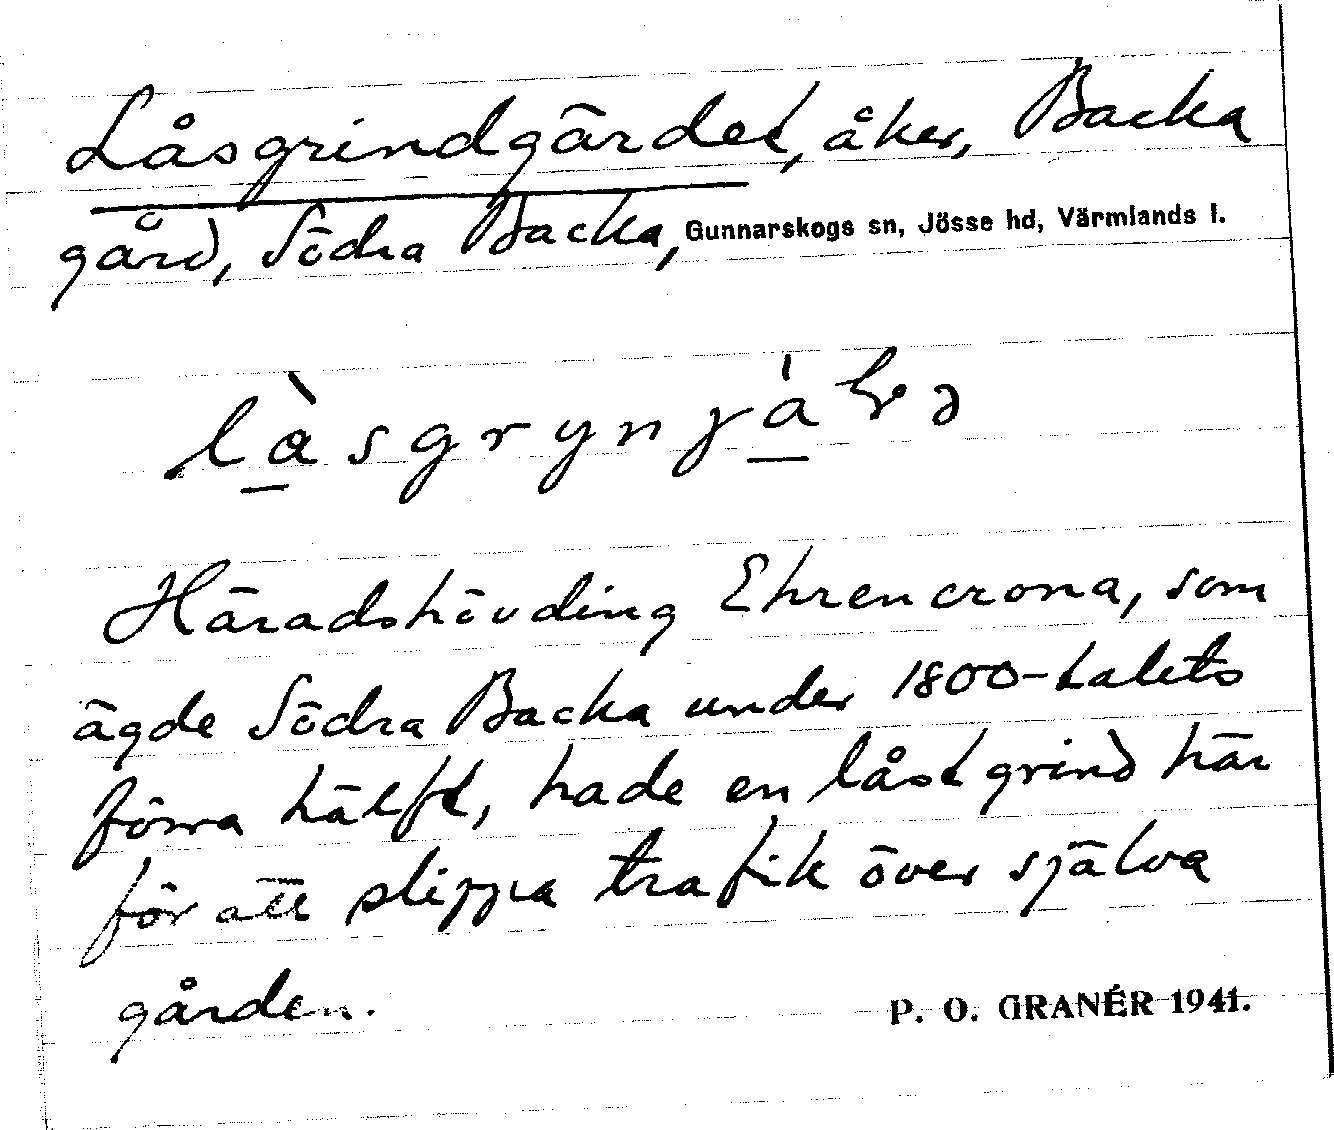 Låsgrindgärdet, åker, Backa
gård, Södra Backa, Gunnarskogs sn, Jösse hd, Värmlands l.
Häradshövding Ehrencrona, som
ägde Södra Backa under 1800-talets
förra hälft, hade en låst grind här
för att slippa trafik över själva
gården.
P. O. GRANÉR 1941.